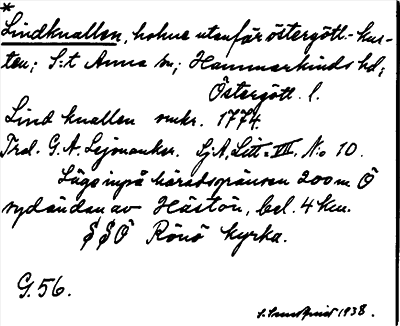 *
Lindknallen, holme utanför östergött.-kus-
ten; S:t Anna sn; Hammarkinds hd;
Östergött. l.
Lind knallen omkr. 1774.
Trol. G. A. Lejonanker. Sj.A, Litt. VII, N:o 10.
Läge inpå häradsgränsen 200 m Ö
sydändan av Hästön, bel. 4 km.
S S Ö Rönö kyrka.
G. 56.
1938.